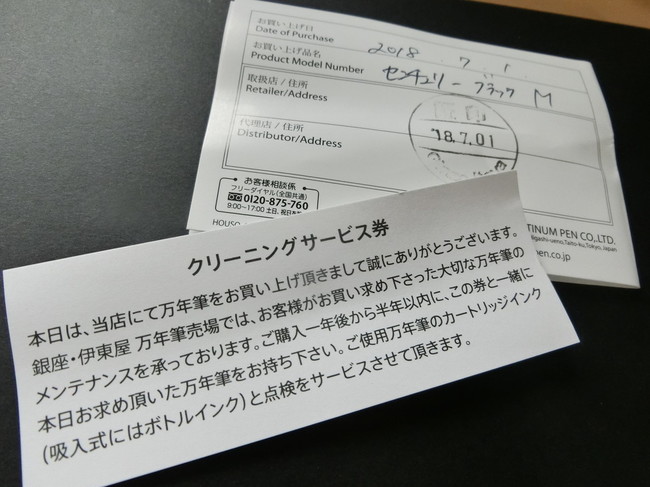 お買い上げ日
Date of Purchase
2018 . 7 . 1 .
お買い上げ品名
Product Model Number
センチュリー ブラック M
取扱店 / 住所
Retailer/Address
代理店 / 住所
Distributor/Address
'18.7.01
お客様相談係
フリーダイヤル(全国共通)
0120-875-760
9:00~17:00 土日、祝日
TINUM PEN CO.,LTD.
igashi-ueno,Taito-ku,Tokyo, Japan
pen.co.jp
クリーニングサービス券
本日は、当店にて万年筆をお買い上げ頂きまして誠にありがとうございます。
銀座・伊東屋 万年筆売場では、お客様がお買い求め下さった大切な万年筆の
メンテナンスを承っております。ご購入一年後から半年以内に、この券と一緒に
本日お求め頂いた万年筆をお持ち下さい。ご使用万年筆のカートリッジインク
(吸入式にはボトルインク)と点検をサービスさせて頂きます。